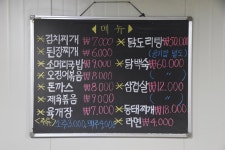 메뉴
김치찌개 ₩7,000
된장찌개 6,000
소머리국밥 ₩9,000
오징어볶음 ₩8,000
돈까스 ₩8,000
제육볶음 ₩9,000
육개장 ₩7,000
닭도리탕 ₩50,000
닭백숙 ₩60,000
삼겹살 ₩12,000
동태찌개 ₩18,000
라면 ₩4,000